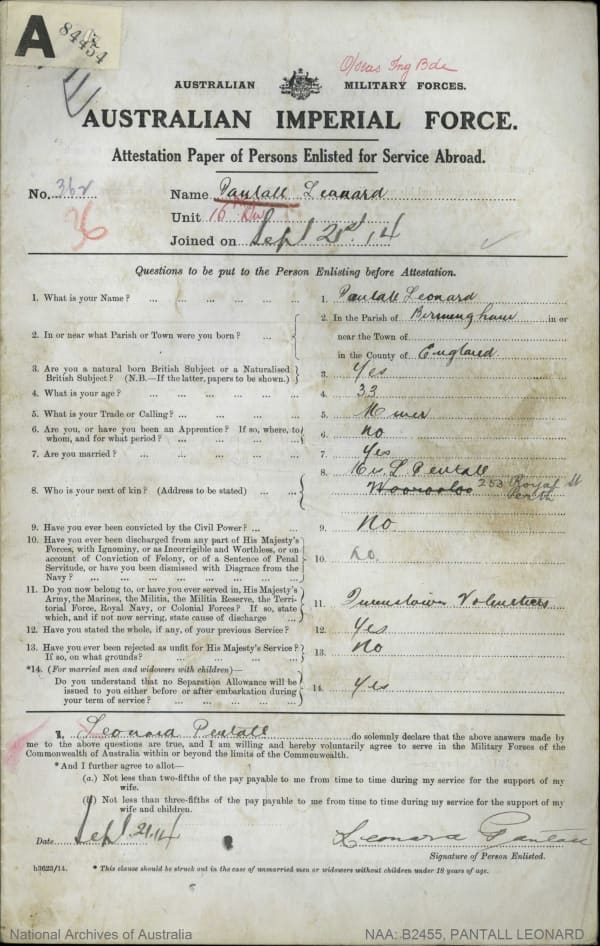 A
84454
O/seas Inf Bde
AUSTRALIAN MILITARY FORCES.
AUSTRALIAN IMPERIAL FORCE.
Attestation Paper of Persons Enlisted for Service Abroad.
No. 362 Name Pantall Leonard
36 Unit 16 Bn
Joined on Sept 21st 14
Questions to be put to the Person Enlisting before Attestation.
1. What is your Name? ... ... ... ... ... 1. Pantall Leonard
2. In or near what Parish or Town were you born? ... 2. In the Parish of Birmingham in or
near the Town of
in the County of England
3. Are you a natural born British Subject or a Naturalised
British Subject? (N.B.—If the latter, papers to be shown.) 3. Yes
4. What is your age? ... ... ... ... ... 4. 33
5. What is your Trade or Calling? ... ... ... ... 5. Miner
6. Are you, or have you been an Apprentice? If so, where, to
whom, and for what period? ... ... ... ... 6. No
7. Are you married? ... ... ... ... ... 7. Yes
8. Who is your next of kin? (Address to be stated) ... ... 8. Mrs L Pentall
Wooroloo 253 Royal St
Perth
9. Have you ever been convicted by the Civil Power? ... ... 9. No
10. Have you ever been discharged from any part of His Majesty's
Forces, with Ignominy, or as Incorrigible and Worthless, or on
account of Conviction of Felony, or of a Sentence of Penal
Servitude, or have you been dismissed with Disgrace from the
Navy? ... ... ... ... ... ... 10. No
11. Do you now belong to, or have you ever served in, His Majesty's
Army, the Marines, the Militia, the Militia Reserve, the Terri-
torial Force, Royal Navy, or Colonial Forces? If so, state
which, and if not now serving, state cause of discharge ... 11. Queenstown Volunteers
12. Have you stated the whole, if any, of your previous Service? 12. Yes
13. Have you ever been rejected as unfit for His Majesty's Service?
If so, on what grounds? ... ... ... ... 13. No
*14. (For married men and widowers with children)—
Do you understand that no Separation Allowance will be
issued to you either before or after embarkation during
your term of service? ... ... ... ... 14. Yes
I, Leonard Pentall do solemnly declare that the above answers made by
me to the above questions are true, and I am willing and hereby voluntarily agree to serve in the Military Forces of the
Commonwealth of Australia within or beyond the limits of the Commonwealth.
* And I further agree to allot—
(a.) Not less than two-fifths of the pay payable to me from time to time during my service for the support of my
wife.
(b) Not less than three-fifths of the pay payable to me from time to time during my service for the support of my
wife and children.
Date Sept. 21.14 Leonard Pantall
Signature of Person Enlisted.
h3623/14. * This clause should be struck out in the case of unmarried men or widowers without children under 18 years of age.
National Archives of Australia NAA: B2455, PANTALL LEONARD